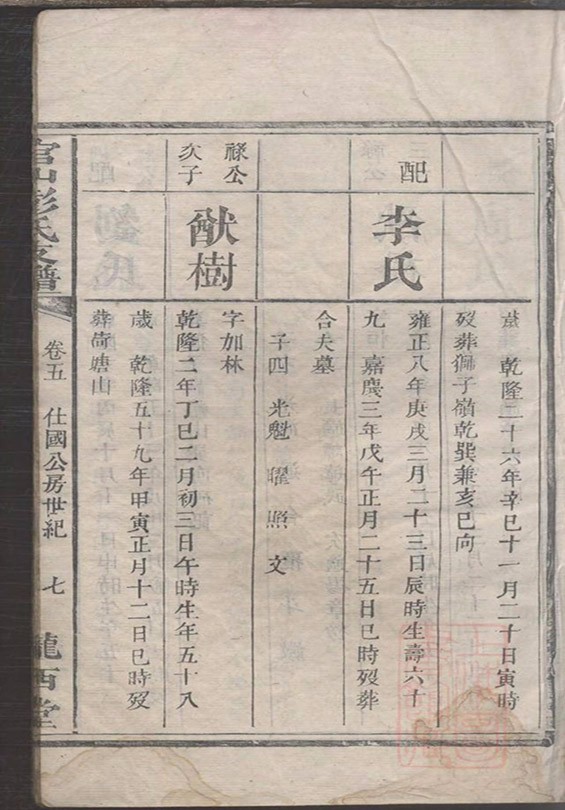 歲 乾隆二十六年辛巳十一月二十日寅時
歿葬獅子嶺乾巽兼亥巳向
配
李氏
雍正八年庚戌三月二十三日辰時生壽六十
九 嘉慶三年戊午正月二十五日巳時歿葬
合夫墓
子四 光魁 曜 照 文
祿公
次子
猷樹
字如林
乾隆二年丁巳二月初三日午時生年五十八
歲 乾隆五十九年甲寅正月十二日巳時歿
葬 塘山
官山彭氏支譜
卷五 仕國公房世紀 七
隴西堂